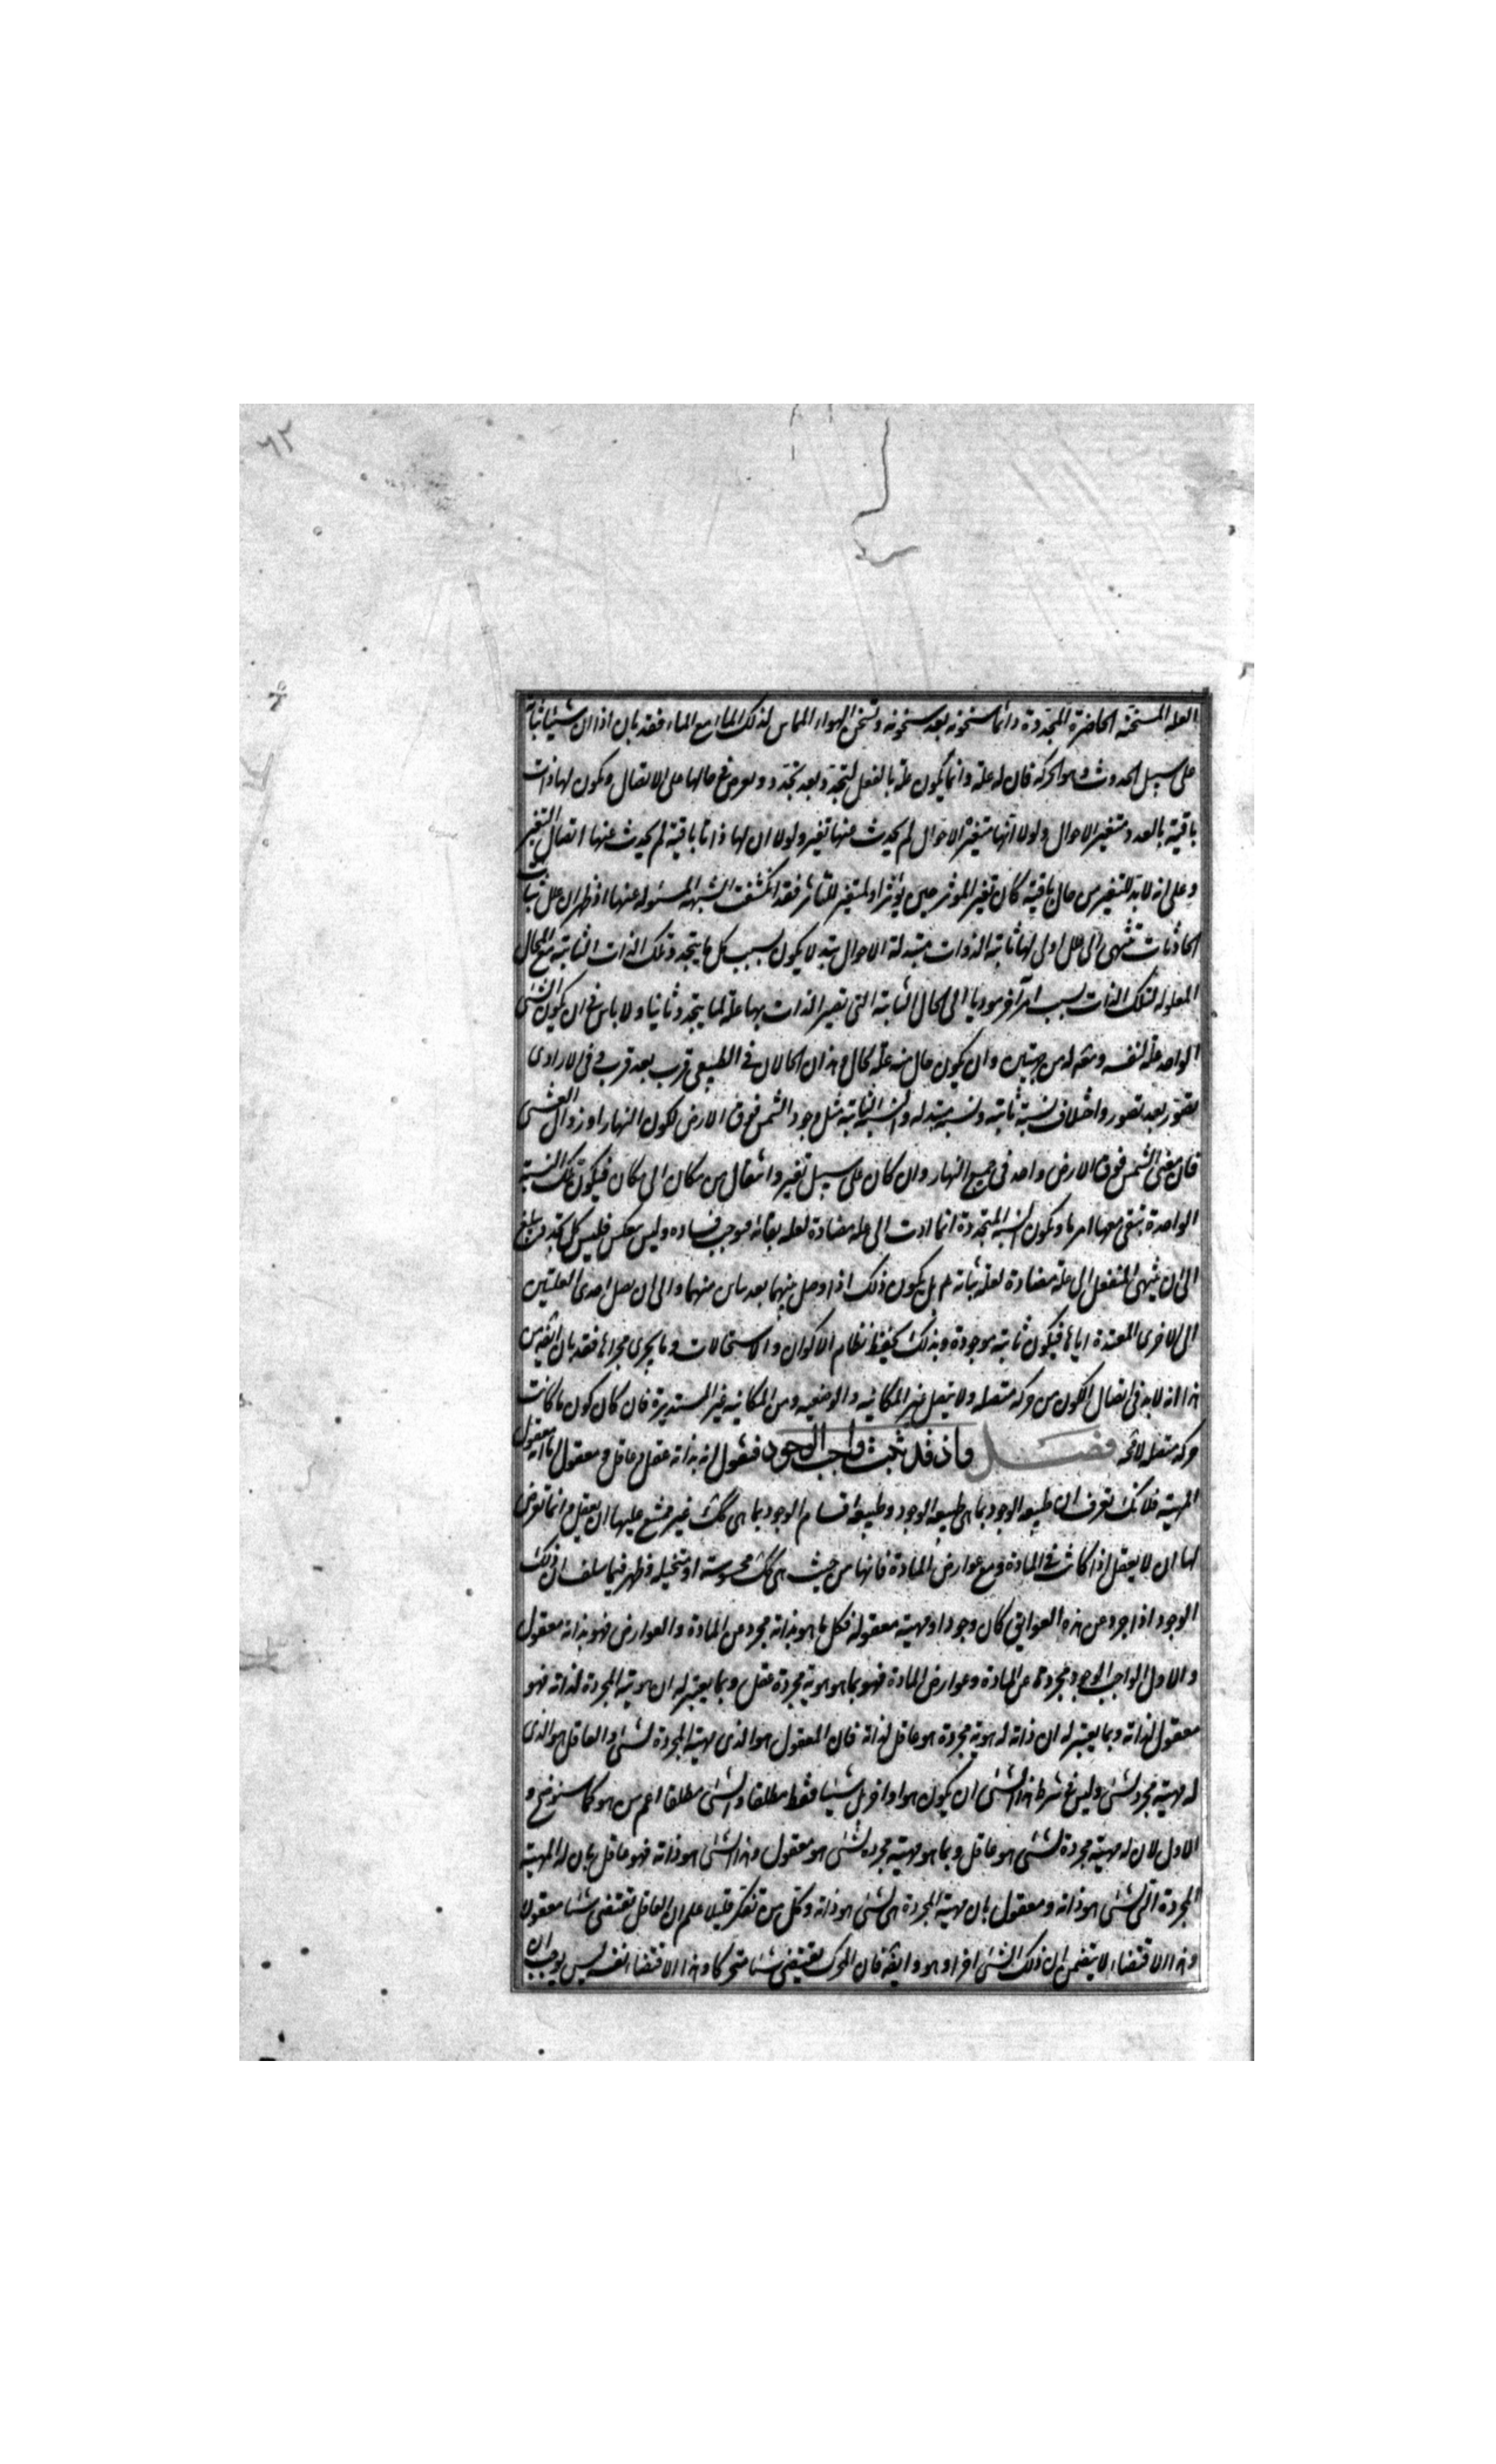 ٦٢
العله المسخنه الحاضرة المتجددة دائما سخونه بعد سخونه وتسخن الهواء المماس لذلك الماء مع الماء فقد بان اذا ان شيئا ثابتا
على سبيل الحدوث وهو الحركه فان له علة وانما يكون علة بالفعل لتجدد بعد تجدد ويعرض في حالها على الاتصال ويكون لها ذات
باقية بالعدد متغير الاحوال ولولا انها متغيرة الاحوال لم يحدث منها تغير ولولا ان لها ذاتا باقية لم يحدث عنها اتصال التغير
وعلى انه لا بد للتغير من حال باقية كان تغير الموثر حين يؤثر او لمتغير المتاثر فقد انكشفت الشبهه المسئوله عنها اذ ظهر ان علل ثبات
الحادثات تنتهى الى علل اولى لها ثابتة الذوات متبدلة الاحوال تبدلا يكون سبب كل ما يتجدد وتلك الذات الثابته مع الحال
المعلوله لتلك الذات بسبب امر آخر موديا الى الحال الثابتة التى تصير الذات بها علة لما يتجدد ثانيا ولا باس فى ان يكون الشئ
الواحد علة لنفسه ومعه له من جهتين وان يكون حال منه علة لحال وهذان الحالان فى الطبيعى قرب بعد قرب وفى الارادى
تصور بعد تصور واختلاف نسبة ثابته ونسبة متبدله والنسبه الثابته مثل وجود الشمس فوق الارض لكون النهار او زوال العشى
فان معنى الشمس فوق الارض واحد فى جميع النهار وان كان على سبيل تغير وانتقال من مكان الى مكان فيكون تلك النسبة
الواحدة تبقى معها امر ما ويكون النسبه المتجددة انما ادت الى علة مضادة لعله بقائه فيوجب فساده وليس بعكس فليس كل تجدد يبلغ
الى ان ينتهى المنفعل الى علة مضادة لعلة ثباته بل يكون ذلك اذا وصل بينهما بعد ماس منهما والى ان يصل احدى العلتين
الى الاخرى المعدة اياها فيكون ثابته موجودة وبذلك يحفظ نظام الاكوان والاستحالات وما يجرى مجراها فقد بان ايضه من
هذا انه لا بد فى اتصال الكون من حركه متصله ولا يتصل غير المكانيه والوضعيه ومن المكانيه غير المستديرة فان كان كون ما كانت
حركة متصله لا محه فصل واذ قد ثبت واجب الوجود فنقول انه بذاته عقل وعاقل ومعقول اما انه معقول
المهية فلانك تعرف ان طبيعه الوجود بما هى طبيعه الوجود وطبيعه اقسام الوجود بما هى كك غير ممتنع عليها ان يعقل وانما تعرض
لها ان لا يعقل اذا كانت فى المادة ومع عوارض المادة فانها من حيث هى كك محسوسه او متخيله وظهر فيما سلف ان ذلك
الوجود اذا جرد من هذه العوايق كان وجودا ومهية معقوله فكل ما هو بذاته مجرد من المادة والعوارض فهو بذاته معقول
والاول الواجب الوجود مجرد عن المادة وعوارض المادة فهو بما هو هوية مجردة عقل وبما يعتبر له ان هويته المجردة لذاته فهو
معقول لذاته وبما يعتبر له ان ذاته له هوية مجردة هو عاقل لذاته فان المعقول هو الذى مهيته المجردة لشئ والعاقل هو الذى
له مهية مجرد لشئ وليس فى شرط هذا الشئ ان يكون هو او اخر بل شيئا فقط مطلقا والشئ مطلقا اعم من هو كما سنوضح و
الاول لان له مهية مجردة لشئ هو عاقل وبما هو مهية مجرده لشئ هو معقول وهذا الشئ هو ذاته فهو عاقل بان له المهية
المجردة التى لشئ هو ذاته ومعقول بان مهيته المجردة هى لشئ هو ذاته وكل من تفكر قليلا علم ان العاقل تقتضى شيئا معقولا
وهذا الاقتضاء لا يتضمن ان ذلك الشئ اخر او هو وايضه فان المحرك يقتضى شيئا متحركا وهذا الاقتضاء نفسه ليس يوجب ان